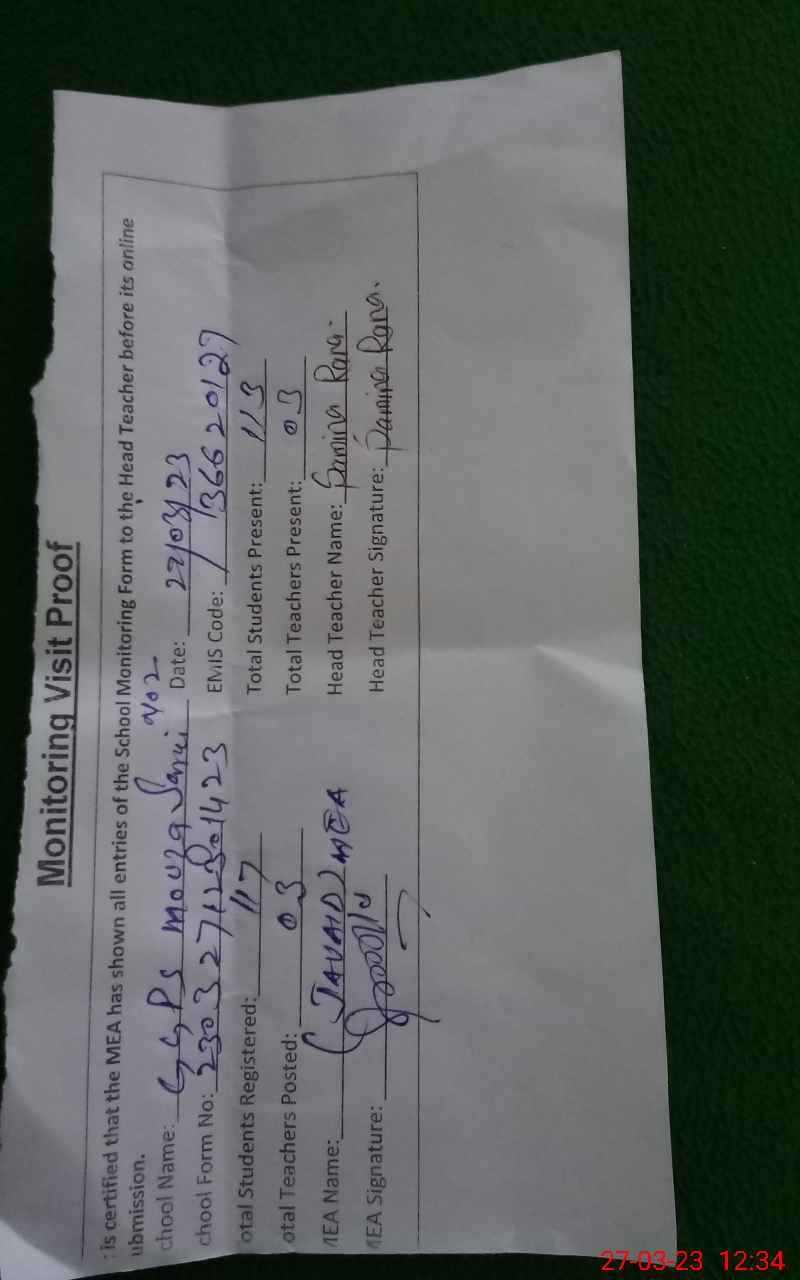 Monitoring Visit Proof
is certified that the MEA has shown all entries of the School Monitoring Form to the Head Teacher before its online
ubmission.
chool Name: GGPS Mouza Date: 27/03/23
chool Form No: EMIS Code: 36620127
otal Students Registered: 117 Total Students Present: 113
otal Teachers Posted: 03 Total Teachers Present: 03
MEA Name: (JAVAID) MEA Head Teacher Name: Samina Rana.
MEA Signature: Head Teacher Signature: Samina Rana.
27-03-23 12:34